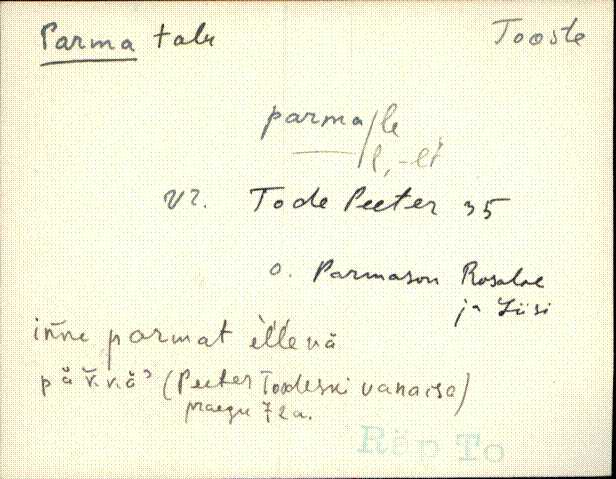 Parma talu Tooste
parma/le
l, -lt
vr. Tode Peeter 35
o. Parmason Rosalie
ja Liisi
iñne parmat ellevä
(Peeter Toodeski vanaisa)
praegu 72 a.
Räp To